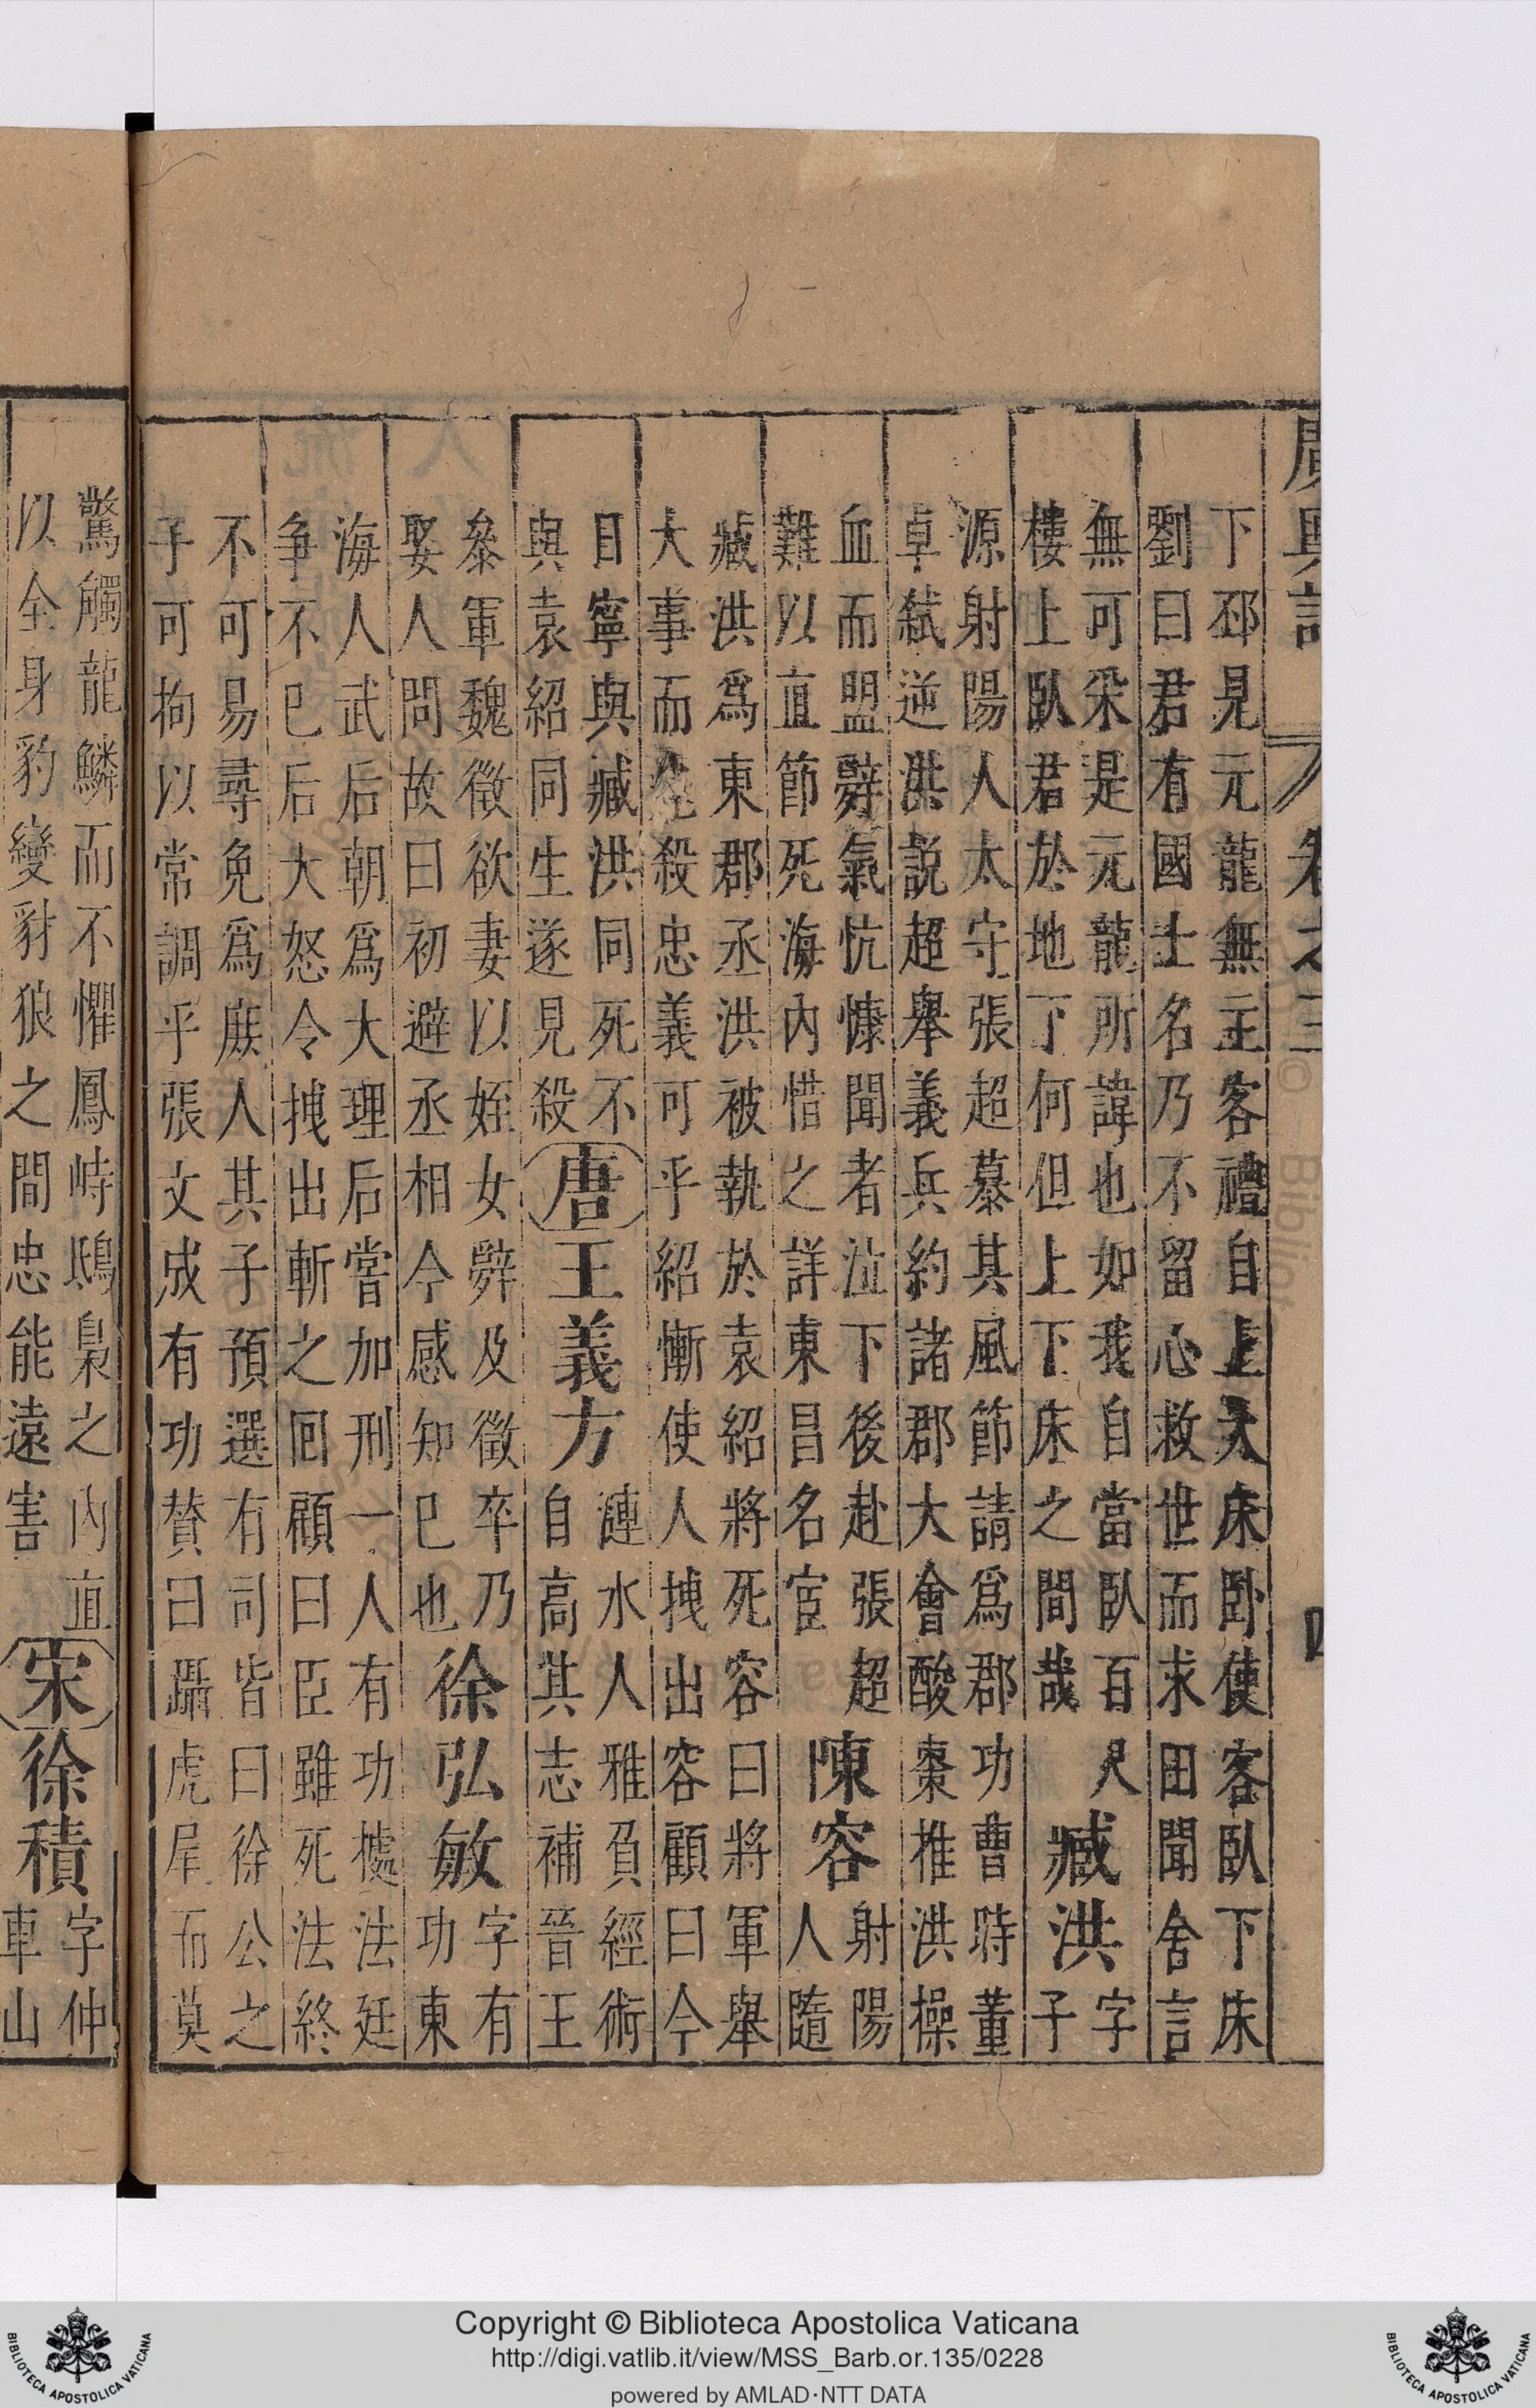 廣輿記 卷之三
下邳見元龍無主客禮自上大床卧使客臥下床
劉曰君有國士名乃不留心救世而求田聞舍言
無可采是元龍所諱也如我自當臥百尺
樓上臥君於地下何但上下床之間哉
臧洪
字
子
源射陽人太守張超慕其風節請爲郡功曹時董
卓弒逆洪説超舉義兵約諸郡大會酸棗推洪操
血而盟辭氣忼慷聞者泣下後赴張超
難以直節死海内惜之詳東昌名宦
陳容
射陽
人隨
臧洪爲東郡丞洪被執於袁紹將死容曰將軍舉
大事而先殺忠義可乎紹慚使人拽出容顧曰今
目寧與臧洪同死不
與袁紹同生遂見殺
唐 王義方
漣水人雅負經術
自高其志補晉王
叅軍魏徵欲妻以姪女辭及徵卒乃
娶人問故曰初避丞相今感知已也
徐弘敏
字有
功東
海人武后朝爲大理后嘗加刑一人有功據法廷
争不已后大怒令拽出斬之囘顧曰臣雖死法終
不可易尋免爲庶人其子預選有司皆曰徐公之
子可拘以常調乎張文成有功賛曰躡虎尾而莫
驚觸龍鱗而不懼鳳峙鴟梟之内直
以全身豹變豺狼之間忠能遠害
宋 徐積
字仲
車山
Copyright © Biblioteca Apostolica Vaticana
http://digi.vatlib.it/view/MSS_Barb.or.135/0228
powered by AMLAD·NTT DATA
BIBLIOTECA APOSTOLICA VATICANA
BIBLIOTECA APOSTOLICA VATICANA